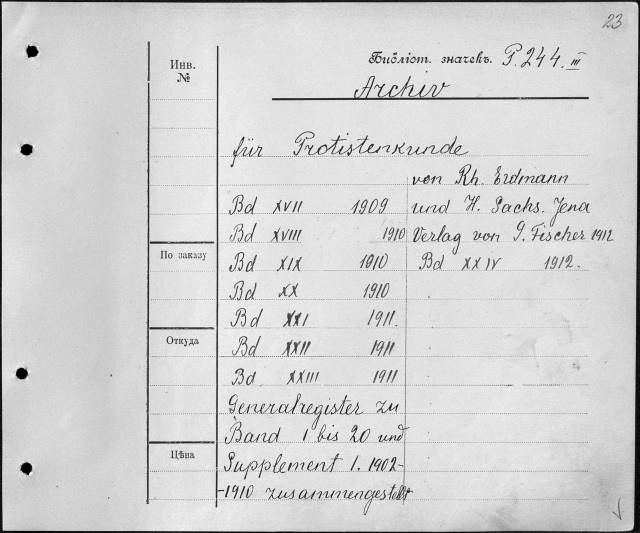 23
Инв.
№
Библіот. значекъ. P. 244. III
Archiv
für Protistenkunde
Bd XVII 1909
Bd XVIII 1910
По заказу
Bd XIX 1910
Bd XX 1910
Bd XXI 1911.
Откуда
Bd XXII 1911
Bd XXIII 1911
Generalregister zu
Band 1 bis 20 und
Цѣна
Supplement 1. 1902-
-1910 zusammengestellt
von Rh. Erdmann
und H. Sachs. Jena
Verlag von G. Fischer 1912
Bd XXIV 1912.